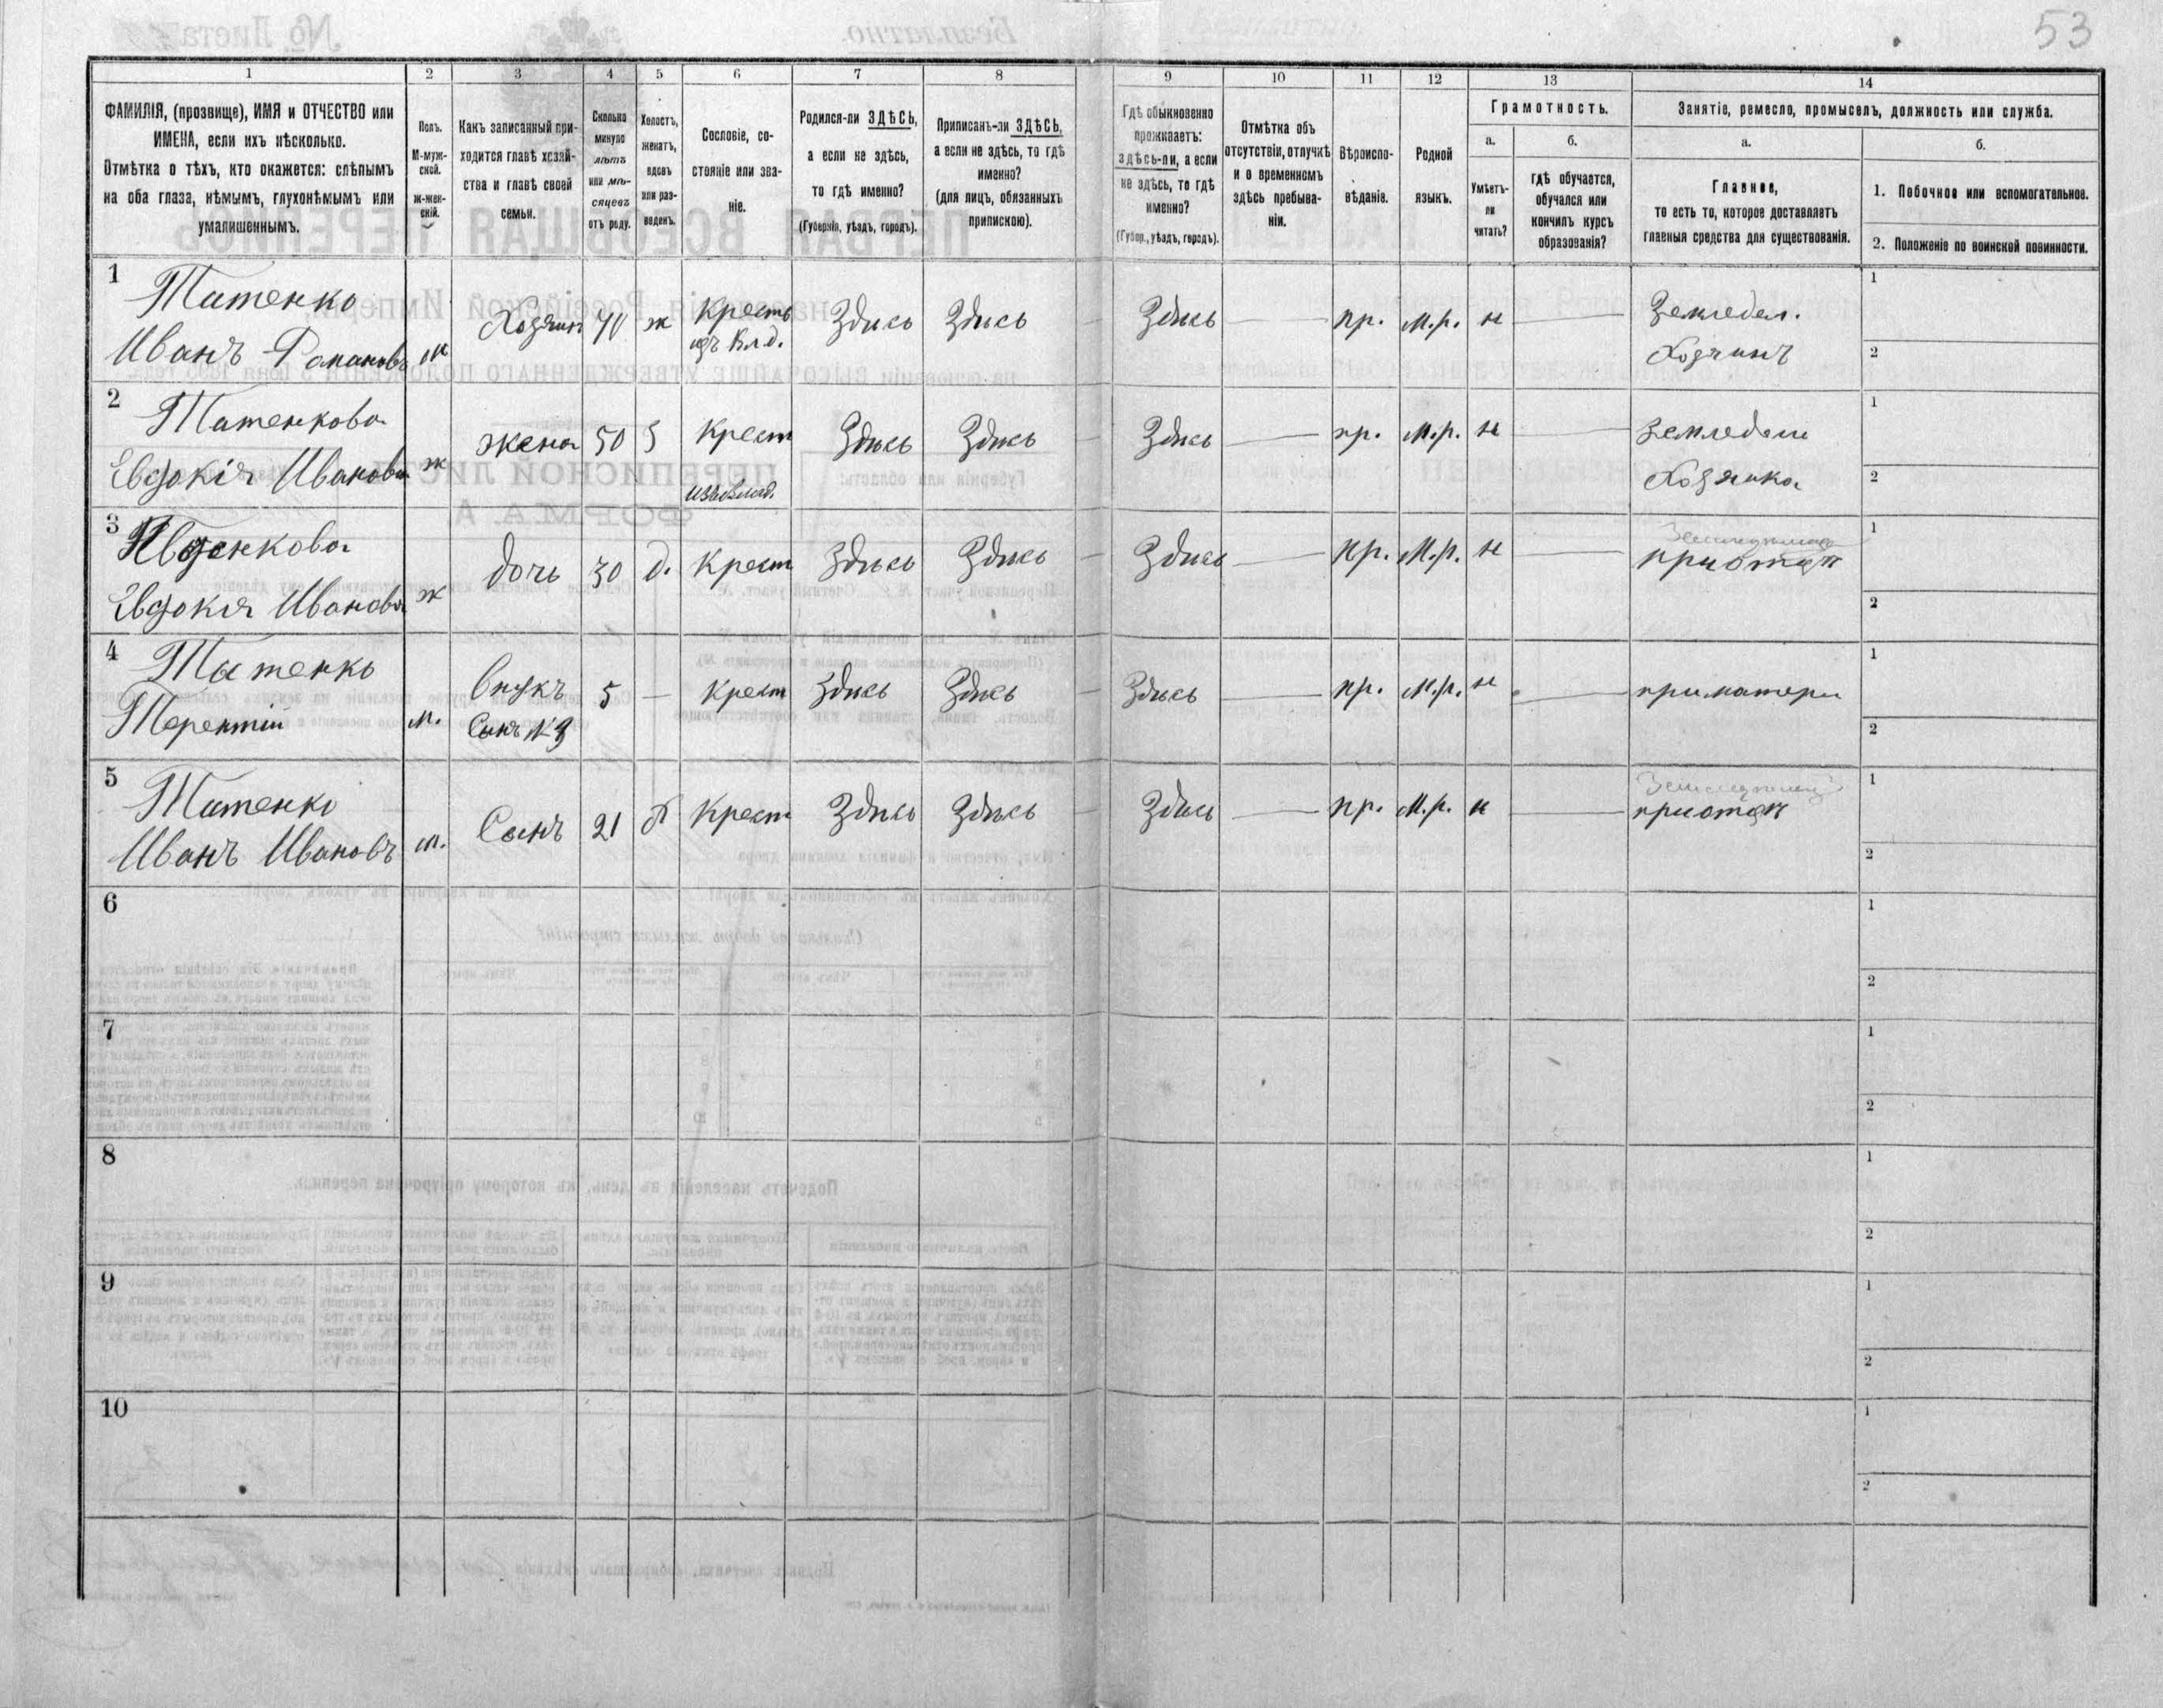 53
1 2 3 4 5 6 7 8 9 10 11 12 13 14
ФАМИЛІЯ, (прозвище), ИМЯ и ОТЧЕСТВО или
ИМЕНА, если ихъ нѣсколько.
Отмѣтка о тѣхъ, кто окажется: слѣпымъ
на оба глаза, нѣмымъ, глухонѣмымъ или
умалишеннымъ.
Полъ.
М-муж-
ской.
Ж-жен-
скій.
Какъ записанный при-
ходится главѣ хозяй-
ства и главѣ своей
семьи.
Сколько
минуло
лѣтъ
или мѣ-
сяцевъ
отъ роду.
Холостъ,
женатъ,
вдовъ
или раз-
веденъ.
Сословіе, со-
стояніе или зва-
ніе.
Родился-ли ЗДѢСЬ,
а если не здѣсь,
то гдѣ именно?
(Губернія, уѣздъ, городъ).
Приписанъ-ли ЗДѢСЬ,
а если не здѣсь, то гдѣ
именно?
(для лицъ, обязанныхъ
припискою).
Гдѣ обыкновенно
проживаетъ:
здѣсь-ли, а если
не здѣсь, то гдѣ
именно?
(Губер., уѣздъ, городъ).
Отмѣтка объ
отсутствіи, отлучкѣ
и о временномъ
здѣсь пребыва-
ніи.
Вѣроиспо-
вѣданіе.
Родной
языкъ.
Грамотность.
а.
Умѣетъ-
ли
читать?
б.
гдѣ обучается,
обучался или
кончилъ курсъ
образованія?
Занятіе, ремесло, промыселъ, должность или служба.
а.
Главное,
то есть то, которое доставляетъ
главныя средства для существованія.
б.
1. Побочное или вспомогательное.
2. Положеніе по воинской повинности.
1 Татенко Хозяин 70 ж Кресть Здись Здись Здись пр. м.р. н Земледел. 1
Иванъ Романовъ м изъ Влд. Хозяинъ 2
2 Татенкова жена 50 З Крест Здись Здись Здись пр. м.р. н земледели 1
Евдокія Иванова ж изъ Влад. Хозяика 2
3 Татенкова дочь 30 д. Крест Здись Здись Здись пр. м.р. н при отцѣ 1
Евдокія Иванова ж 2
4 Татенко Внукъ 5 Крест Здись Здись Здись пр. м.р. н при матери 1
Терентій м. Сынъ №3 2
5 Татенко Сынъ 21 х Крест Здись Здись Здись пр. м.р. н при отцѣ 1
Иванъ Ивановъ м. 2
6 1
2
7 1
2
8 1
2
9 1
2
10 1
2